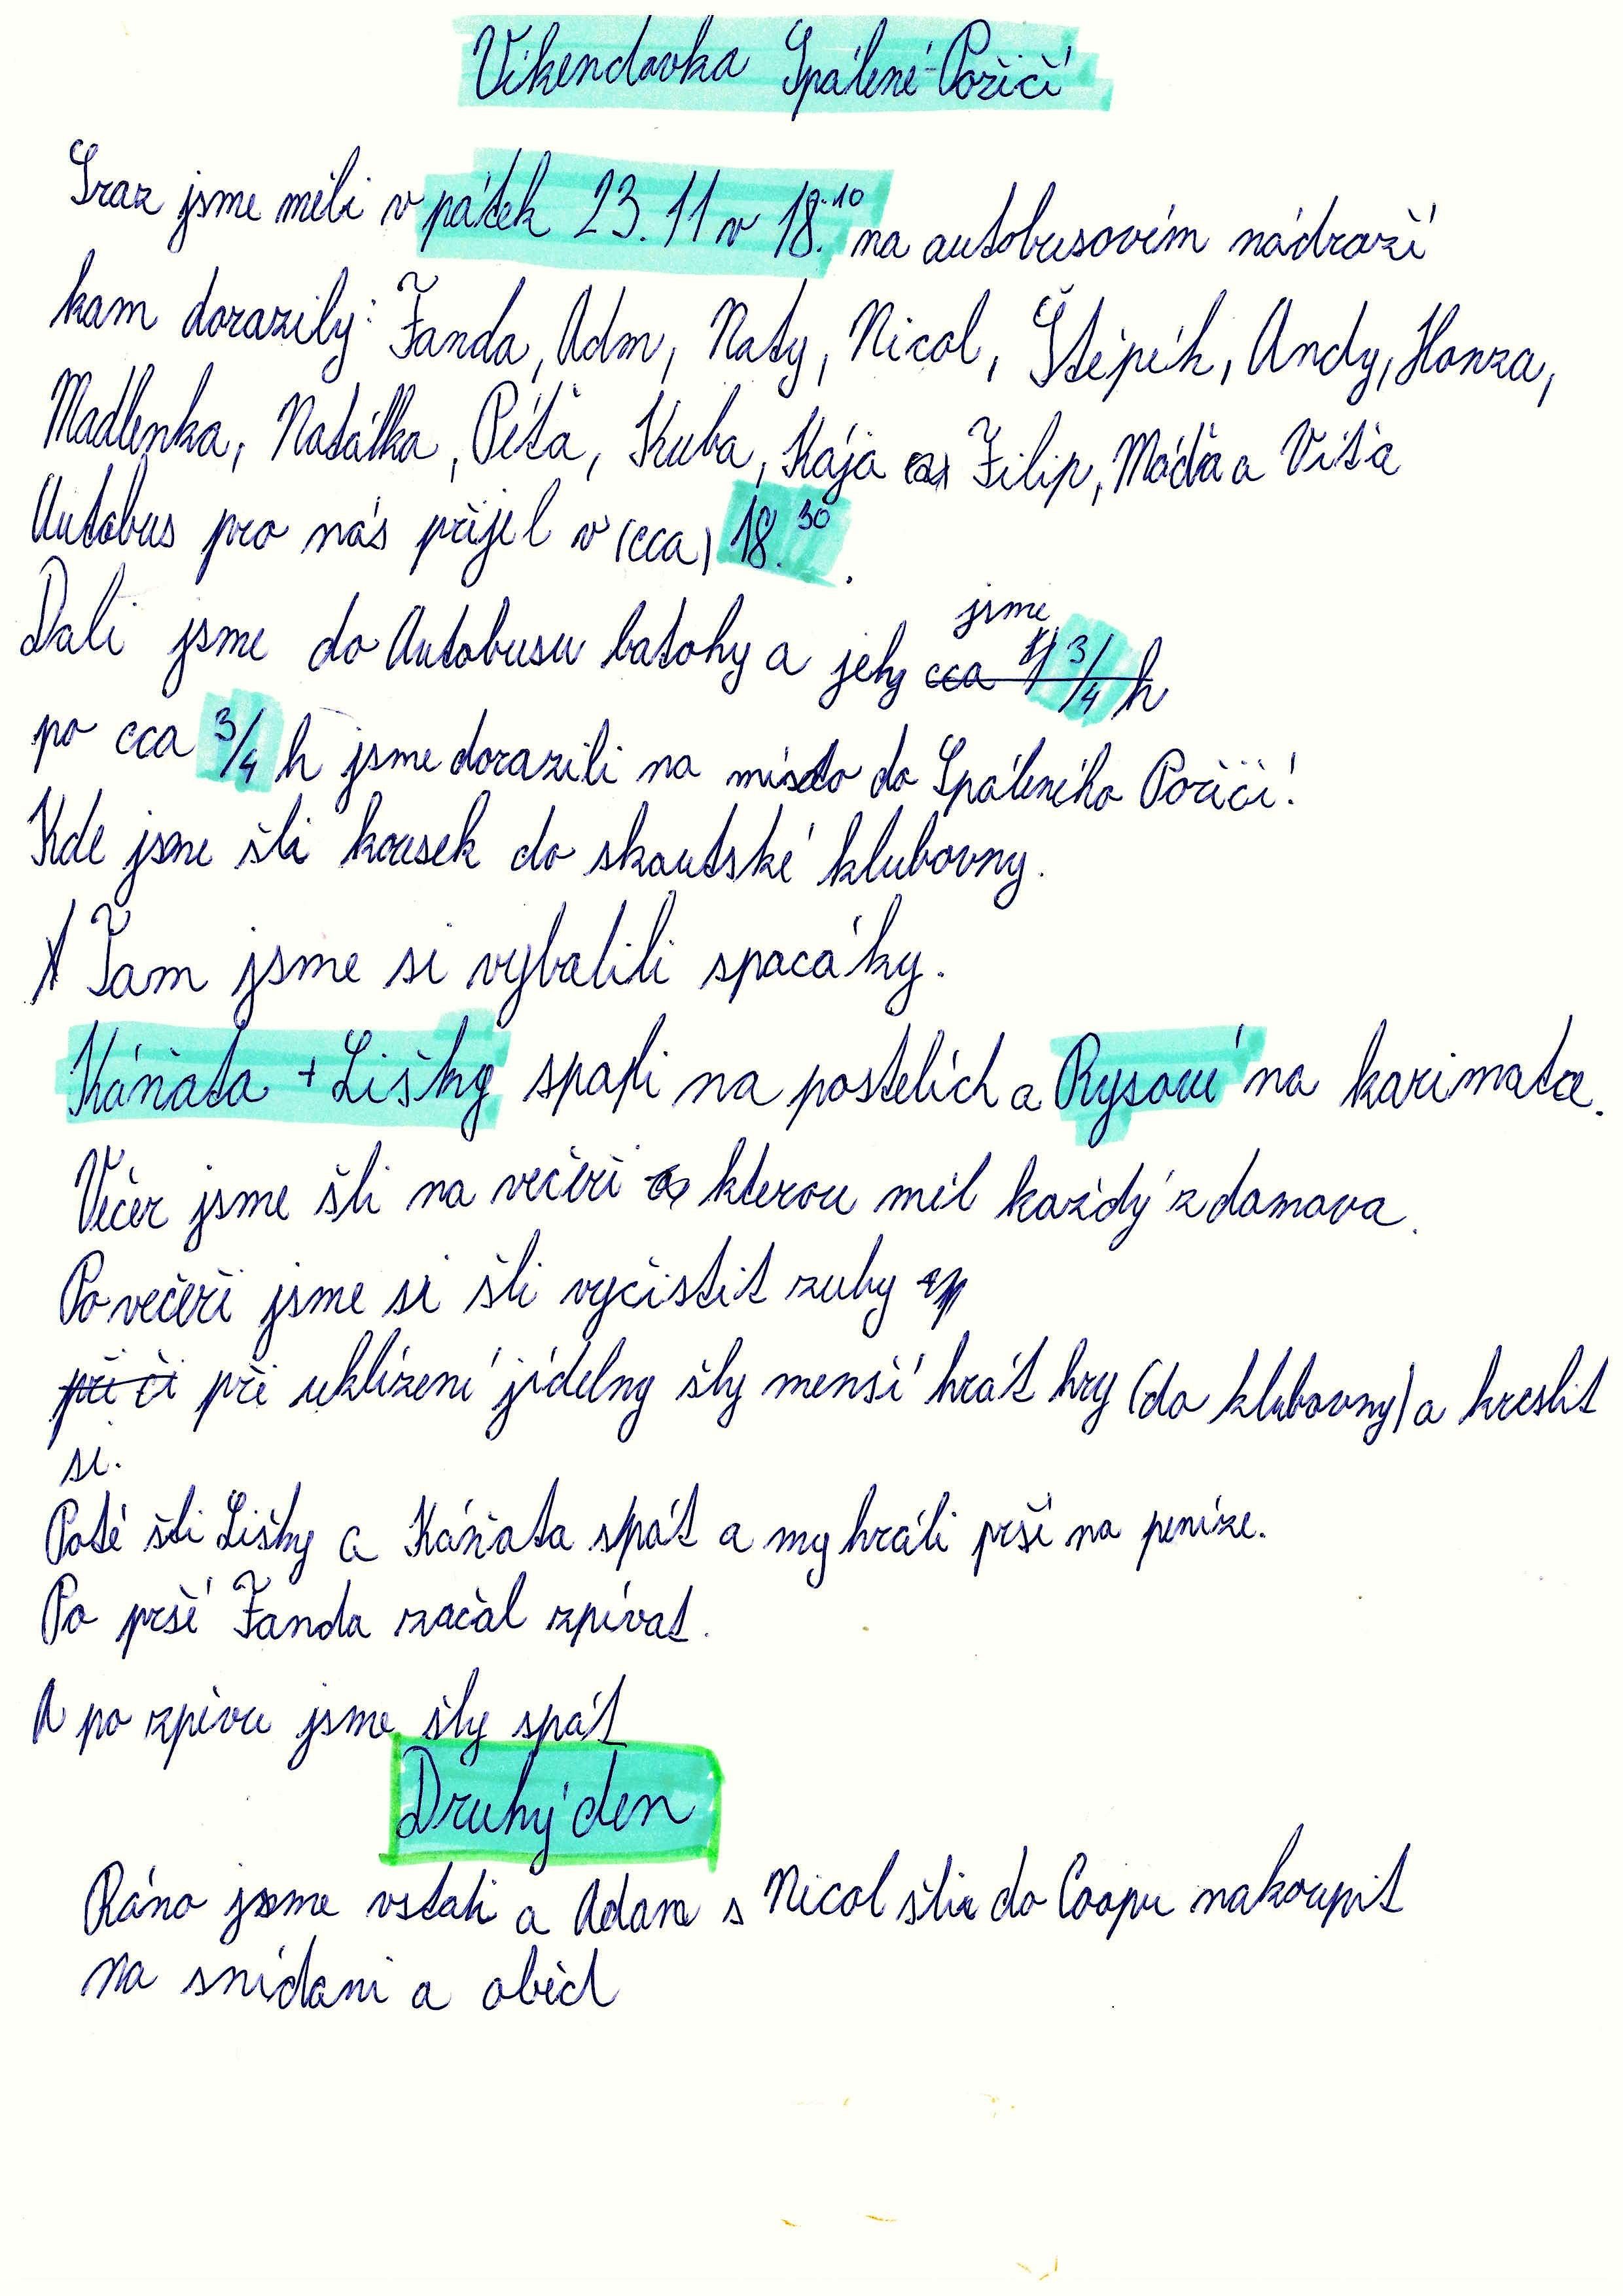 Víkendovka Spálené Poříčí
Sraz jsme měli v pátek 23.11 v 18.10 na autobusovém nádraží
kam dorazily: Fanda, Adm, Naty, Nicol, Štěpek, Andy, Honza,
Madlenka, Natálka, Péťa, Kuba, Kája Filip, Máďa a Víťa
Autobus pro nás přijel v (cca) 18.30.
Dali jsme do Autobusu batohy a jely jsme cca 3/4 h
po cca 3/4 h jsme dorazili na místo do Spáleného Poříčí!
Kde jsme šli kousek do skautské klubovny.
Tam jsme si vybalili spacáky.
Káňata + Lišky spali na postelích a Rysové na karimatce.
Večer jsme šli na večeři kterou měl každý z domova.
Po večeři jsme si šli vyčistit zuby
při či při uklízení jídelny šly menší hrát hry (do klubovny) a kreslit
si.
Poté šli Lišky a Káňata spát a my hráli prší na peníze.
Po prší Fanda začal zpívat.
A po zpěvu jsme šly spát
Druhý den
Ráno jsme vstali a Adam s Nicol šli do Coopu nakoupit
na snídani a oběd